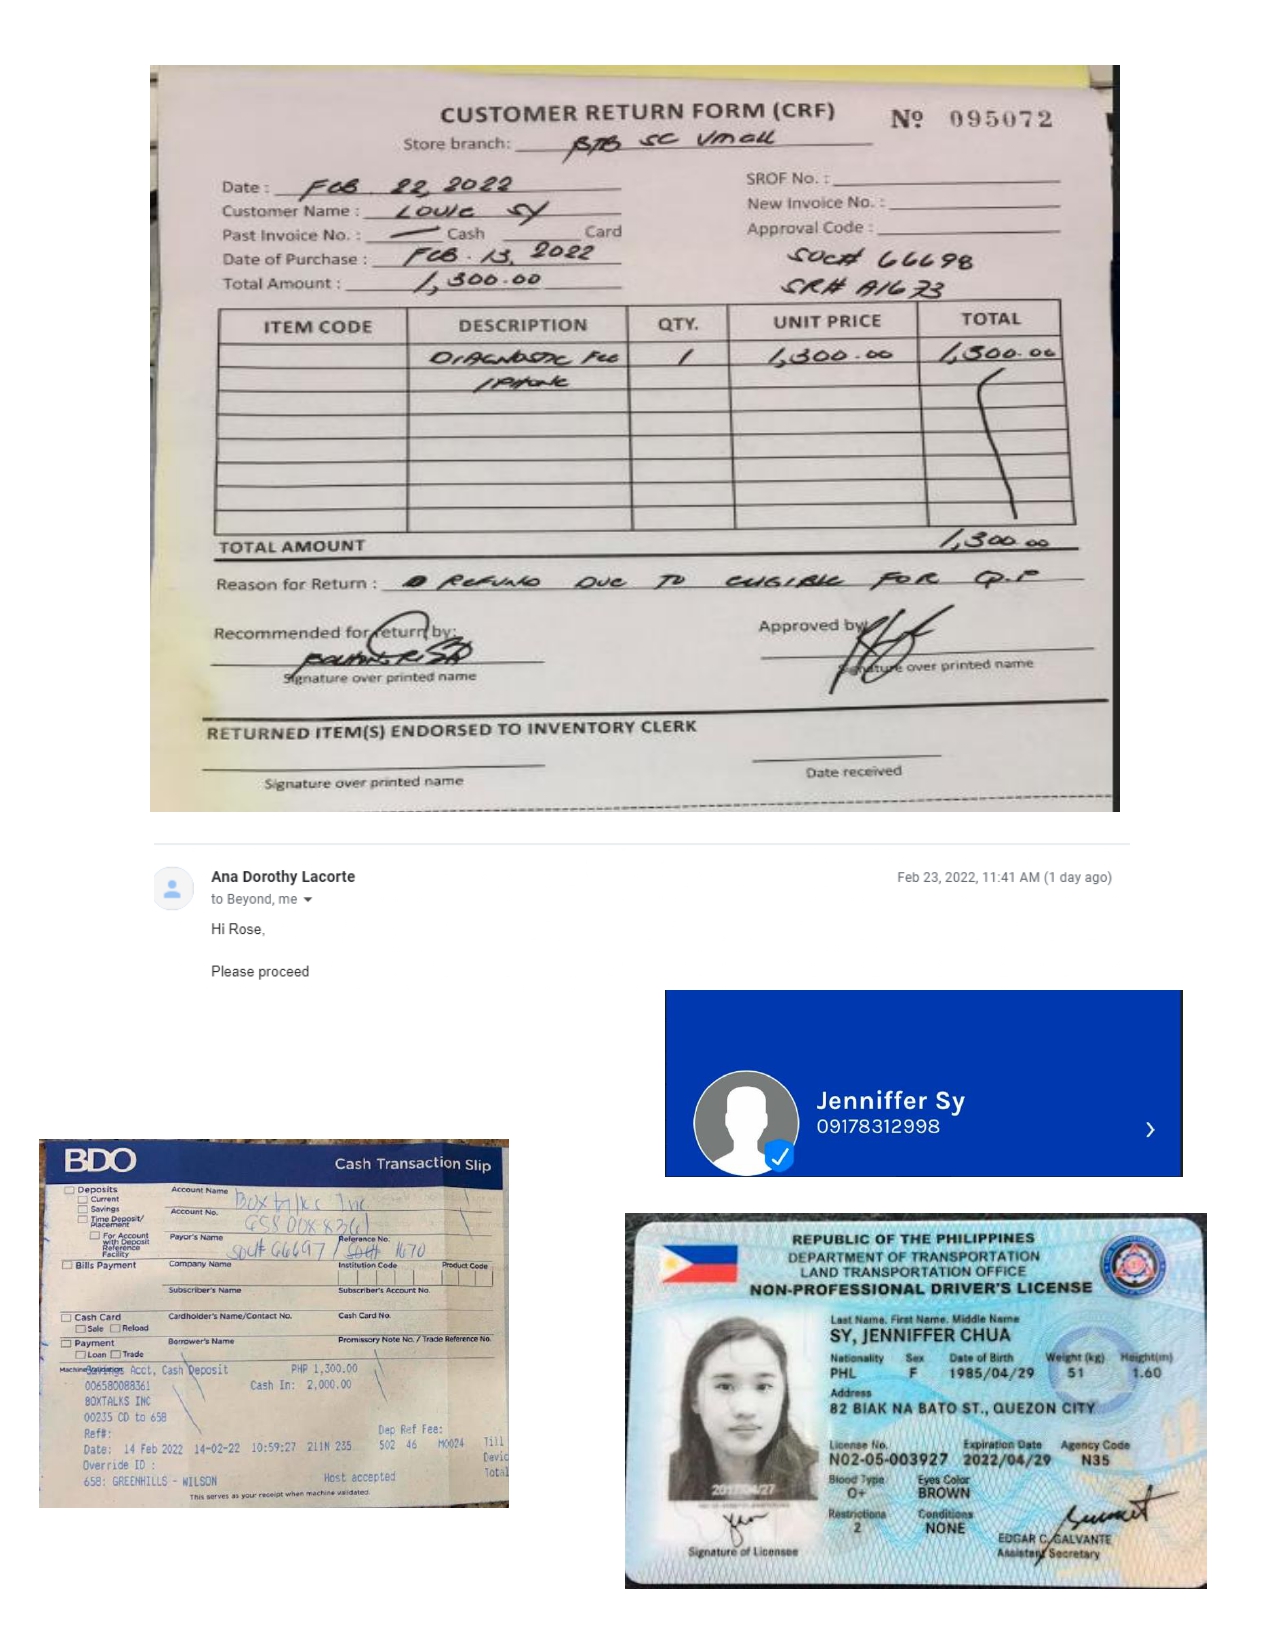 CUSTOMER RETURN FORM (CRF)
Nº 095072
Store branch: BTB SC Vmall
Date : FEB 22, 2022
SROF No. :
Customer Name : LOUIE SY
New Invoice No. :
Past Invoice No. : — Cash Card
Approval Code :
Date of Purchase : FEB. 13, 2022
SOC# 66698
Total Amount : 1,300.00
SR# A1673
ITEM CODE DESCRIPTION QTY. UNIT PRICE TOTAL
DIAGNOSTIC FEE 1 1,300.00 1,300.00
IPHONE
TOTAL AMOUNT 1,300.00
Reason for Return : REFUND DUE TO ELIGIBLE FOR Q.P
Recommended for return by:
Approved by
Signature over printed name
Signature over printed name
RETURNED ITEM(S) ENDORSED TO INVENTORY CLERK
Signature over printed name
Date received
Ana Dorothy Lacorte
Feb 23, 2022, 11:41 AM (1 day ago)
to Beyond, me
Hi Rose,
Please proceed
Jenniffer Sy
09178312998
BDO
Cash Transaction Slip
Deposits
Current
Savings
Time Deposit/
Placement
For Account
with Deposit
Reference
Facility
Account Name Boxtalks Inc
Account No.
Payor's Name
Reference No.
SOC# 66697 / 1670
Bills Payment
Company Name
Institution Code
Product Code
Subscriber's Name
Subscriber's Account No.
Cash Card
Sale Reload
Cardholder's Name/Contact No.
Cash Card No.
Payment
Loan Trade
Borrower's Name
Promissory Note No. / Trade Reference No.
Machine Validation
Acct, Cash Deposit PHP 1,300.00
006580088361 Cash In: 2,000.00
BOXTALKS INC
00235 CD to 658
Ref#: Dep Ref Fee:
Date: 14 Feb 2022 14-02-22 10:59:27 211N 235 502 46 M0024 Till
Override ID : Devic
658: GREENHILLS - WILSON Host accepted Total
This serves as your receipt when machine validated.
REPUBLIC OF THE PHILIPPINES
DEPARTMENT OF TRANSPORTATION
LAND TRANSPORTATION OFFICE
NON-PROFESSIONAL DRIVER'S LICENSE
Last Name. First Name. Middle Name
SY, JENNIFFER CHUA
Nationality Sex Date of Birth Weight (kg) Height(m)
PHL F 1985/04/29 51 1.60
Address
82 BIAK NA BATO ST., QUEZON CITY
License No. Expiration Date Agency Code
N02-05-003927 2022/04/29 N35
Blood Type Eyes Color
O+ BROWN
Restrictions Conditions
2 NONE
2017/04/27
Signature of Licensee
EDGAR C. GALVANTE
Assistant Secretary